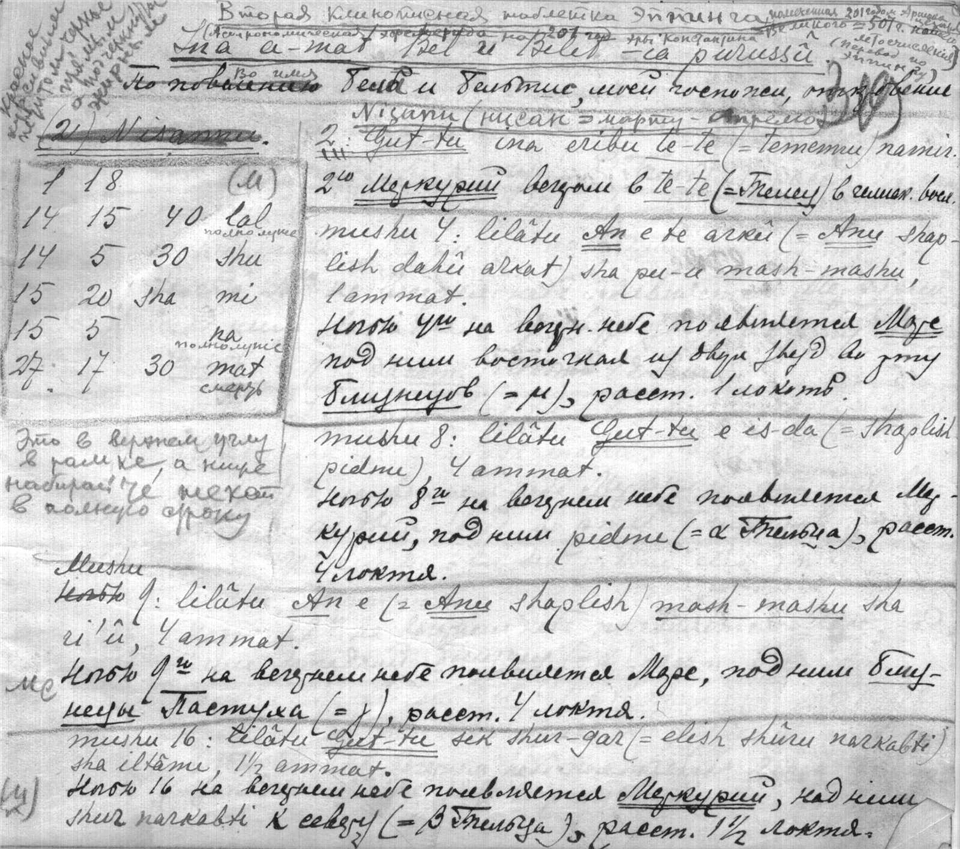 Вторая клинописная таблетка Эппинга
(Астрономическая
на 201 год эры Константина
Ina a-mat Bel u Belit -ia purussû.
Во имя
По повелению Бела и Бельтис, моей госпожи, откровение
319
(2) Nisannu.
Nisanu (нисан = марту - апрелю)
2. Gut-tu ina eribu te-te (= tementu) namir.
2го Меркурий вечером в te-te (= Телец) в гелиак. восх.
1 18 (М)
14 15 40 lal
полнолуние
14 5 30 shu
15 20 sha mi
15 5 na
полнолуние
27 17 30 mat
смерть
mushu 4: lilâtu An e te arkû (= Anu shap-
lish dahû arkat) sha pu-u mash-mashu,
1 ammat.
Ночью 4го на вечерн. небе появляется Марс
под ним восточная из двух звезд во рту
близнецов (= μ), расст. 1 локоть.
Это в верхнем углу
в рамке, а ниже
набирайте текст
в полную строку
mushu 8: lilâtu Gut-tu e is-da (= shaplish
pidnu), 4 ammat.
Ночью 8го на вечернем небе появляется Мер-
курий, под ним pidnu (= α Тельца), расст.
4 локтя.
Mushu
Ночью 9: lilâtu An e (= Anu shaplish) mash-mashu sha
ri'û, 4 ammat.
Ночью 9го на вечернем небе появляется Марс, под ним близ-
нецы Пастуха (= γ), расст. 4 локтя.
mushu 16: lilâtu Gut-tu sik shur-gar (= elish shûru narkabti)
sha iltâmi, 1½ ammat.
(М) Ночью 16 на вечернем небе появляется Меркурий, над ним
shur narkabti к северу (= β Тельца), расст. 1½ локтя.